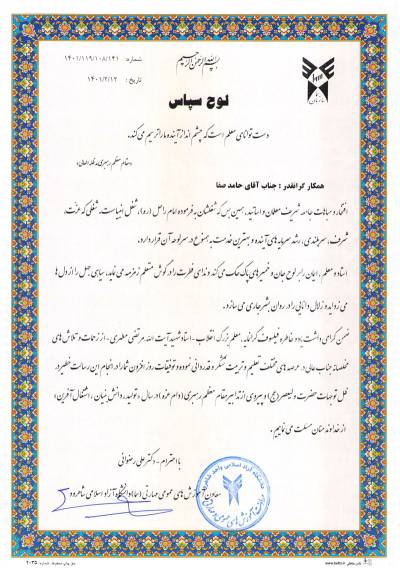 بسم الله الرحمن الرحیم
شماره: ۱۴۰۱/۱۱۹/۱۰۸/۱۴۱
تاریخ: ۱۴۰۱/۲/۱۲
لوح سپاس
دست توانای معلم است که چشم انداز آینده ما را ترسیم می‌کند.
همکار گرانقدر : جناب آقای حامد صفا
افتخار و مباهات جامعه شریف معلمان و اساتید، همین بس که شغلشان به فرموده امام راحل (ره)، شغل انبیاست. شغلی که عزت،
شرف، سربلندی، رشد سرمایه‌های آینده و بهترین خدمت به همنوع در سرلوحه آن قرار دارد.
استاد و معلم، ایمان را بر لوح جان و ضمیرهای پاک حک می‌کند و ندای فطرت را در گوش متعلم زمزمه می‌نماید، سیاهی جهل را از دل‌ها
می‌زداید و زلال دانایی را در روان بشر جاری می‌سازد.
ضمن گرامی داشت یاد و خاطره فیلسوف گرانمایه، معلم بزرگ انقلاب - استاد شهید آیت الله مرتضی مطهری - از زحمات و تلاش‌های
مخلصانه جناب عالی در عرصه‌های مختلف تعلیم و تربیت تشکر و قدردانی نموده و توفیقات روزافزون شما را در انجام این رسالت خطیر در
ظل توجهات حضرت ولیعصر (عج) و پیروی از تدابیر مقام معظم رهبری (دام عزه) در سال «تولید، دانش بنیان، اشتغال آفرین»
از خداوند منان مسئلت می‌نماییم.
با احترام - دکتر علی رضوانی
معاون آموزش‌های عمومی مهارتی (سما) دانشگاه آزاد اسلامی شاهرود